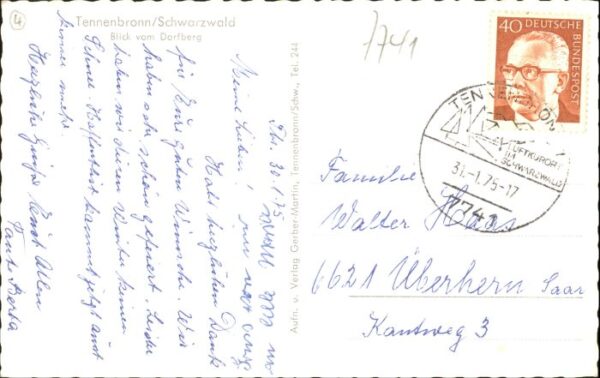 4
Tennenbronn/Schwarzwald
Blick vom Dorfberg
7741
40 DEUTSCHE BUNDESPOST
TENNENBRONN
LUFTKURORT
IM
SCHWARZWALD
31.-1.75-17
7741
Tbr. 30.1.75
Meine Lieben!
Habt herzlichen Dank
für Eure guten Wünsche. Wir
haben sehr schön gefeiert. Leider
haben wir diesen Winter keinen
Schnee. Hoffentlich kommt jetzt auch
keiner mehr.
Herzliche Grüße Euch allen
Tante Berta
Aufn. u. Verlag Gerber-Martin, Tennenbronn/Schw., Tel. 244
Familie
Walter Haas
6621 Überhern Saar
Kantweg 3